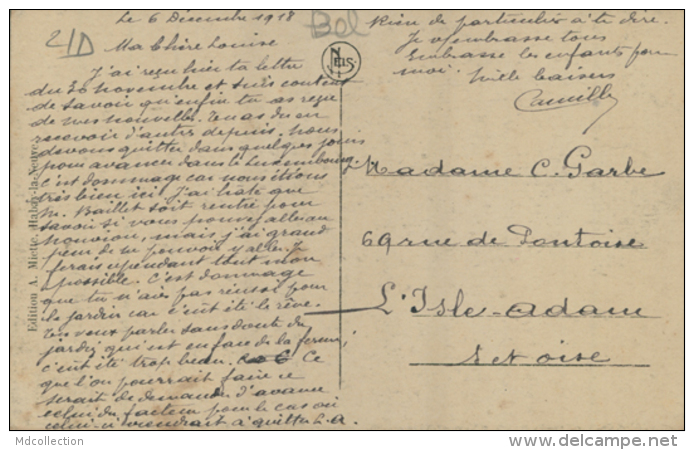 Le 6 Décembre 1918
Bel
2/D
Ma Chère Louise
J'ai reçu hier ta lettre
du 30 novembre et suis content
de savoir qu'enfin tu as reçu
de mes nouvelles. Tu as du en
recevoir d'autres depuis. Nous
devons quitter dans quelques jours
pour avancer dans le Luxembourg.
c'est dommage car nous étions
très bien ici. J'ai hâte que
M. Baillet soit rentré pour
savoir si vous pouvez aller au
Nouvion, mais j'ai grand
peur de ne pouvoir y aller. Je
ferais cependant tout mon
possible. C'est dommage
que tu n'aies pas réussi pour
le jardin car c'eut été le rêve.
Tu veux parler sans doute du
jardin qui est en face de la ferme,
c'eut été trop beau. Ce
que l'on pourrait faire ce
serait de demander d'avance
celui du facteur pour le cas où
celui-ci viendrait à quitter L.A.
Rien de particulier à te dire.
Je t'embrasse tous
Embrasse les enfants pour
moi. Mille baisers
Camille
Madame C. Garbe
69 rue de Pontoise
L'Isle-adam
S et oise
Edition A. Miette, Habay-la-Neuve
Mdcollection
www.delcampe.net